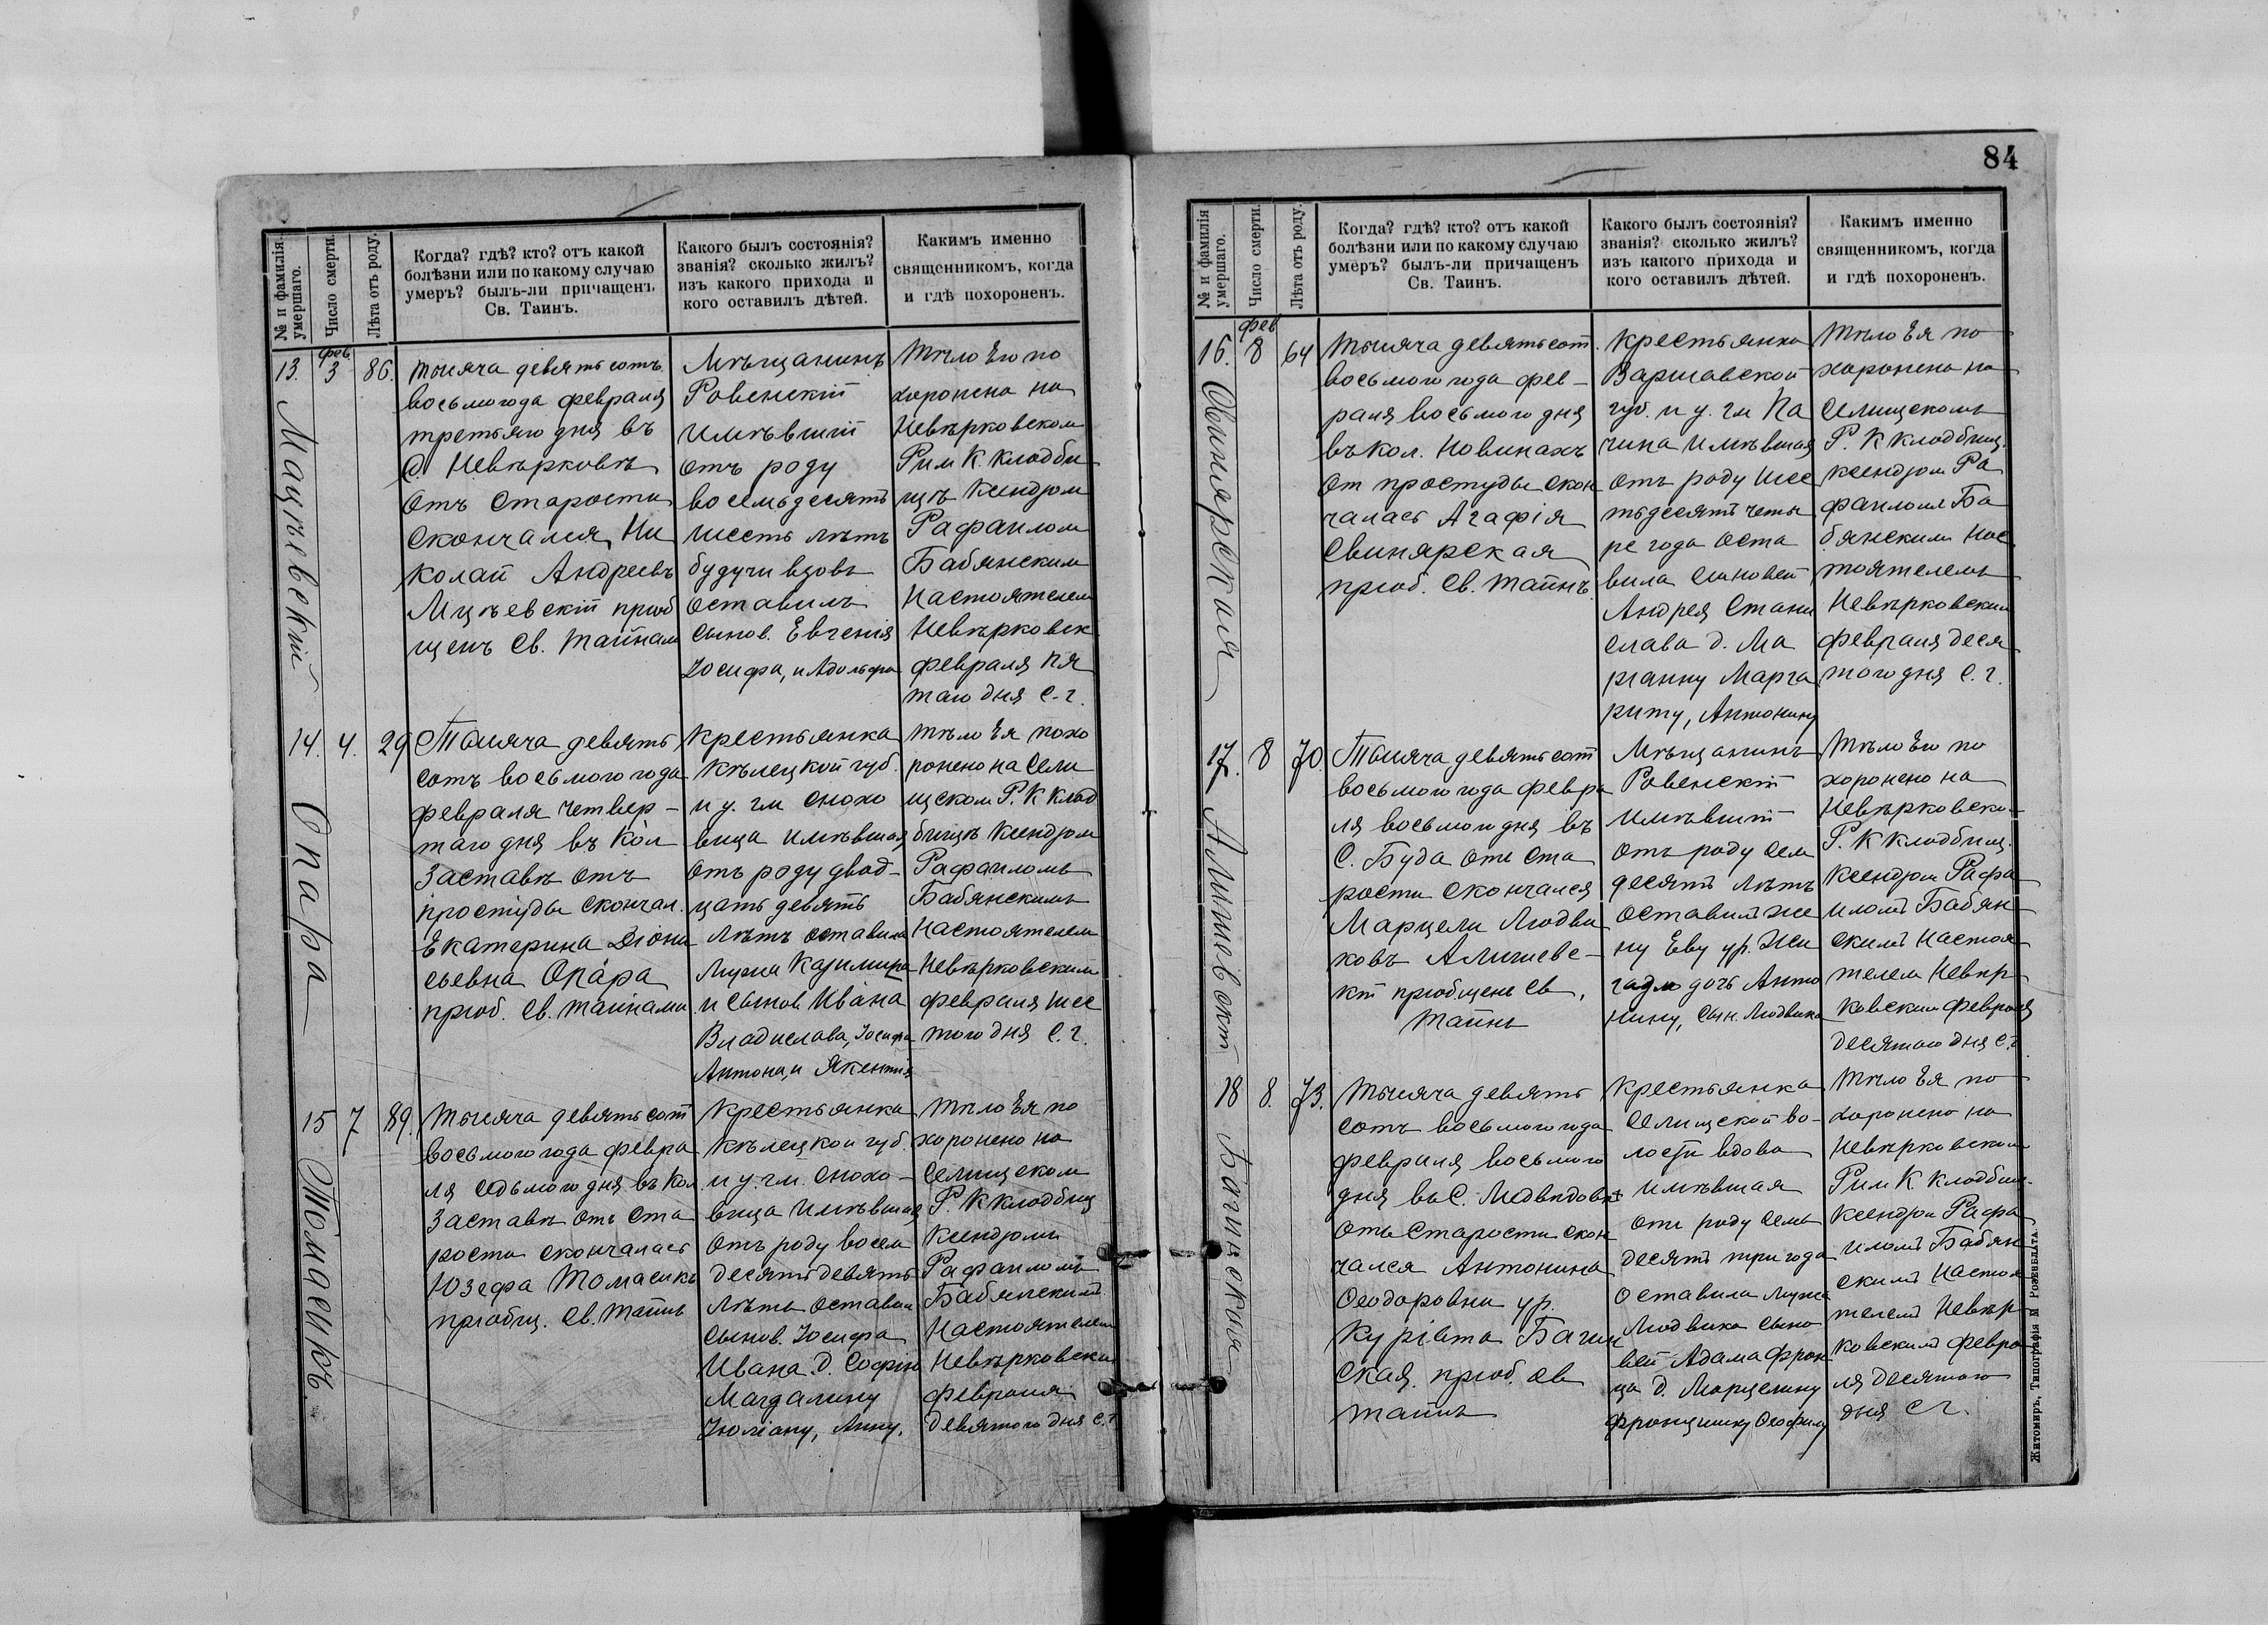 № и фамилія умершаго.
Число смерти.
Лѣта отъ роду.
Когда? гдѣ? кто? отъ какой
болѣзни или по какому случаю
умеръ? былъ-ли причащенъ
Св. Таинъ.
Какого былъ состоянія?
званія? сколько жилъ?
изъ какого прихода и
кого оставилъ дѣтей.
Какимъ именно
священникомъ, когда
и гдѣ похороненъ.
13.
фев
3
86.
Мацѣевскій
тысяча девятьсотъ
восьмогода февраля
третьяго дня въ
С. Невѣрковѣ
отъ старости
скончался Ни
колай Андреевъ
Мцѣевскій приоб
щенъ Св. Тайнам
Мѣщанинъ
Ровенскій
имѣвшій
отъ роду
восемьдесятъ
шесть лѣтъ
будучи вдовъ
оставилъ
сынов. Евгенія
Іосифа, и Адольфа
Тѣло Его по
хоронено на
Невѣрковском
Рим К. кладби
щѣ Ксендзом
Рафаилом
Бабянским
Настоятелем
Невѣрковск.
февраля пя
таго дня с. г.
14.
4.
29
Опара
Тысяча девять
сотъ восьмого года
февраля четвер-
таго дня въ Кол
Заставѣ отъ
простуды скончал.
Екатерина Діони
сьевна Опара
приоб. Св. Тайнами
Крестьянка
Кѣлецкой губ.
и у. гм Снохо
вица имѣвшая
отъ роду двад-
цать девять
лѣтъ оставила
Мужа Казимира
и сынов Ивана
Владислава, Іосифа
Антона, и Якентія
Тѣло Ея похо
ронено на Сели
щеском Р. К Клад
бищѣ Ксендзом
Рафаиломъ
Бабянскимъ
Настоятелем
Невѣрковским
февраля шес
того дня с. г.
15
7
89.
Томасикъ.
тысяча девятьсот
восьмого года февра
ля седьмого дня въ Кол.
Заставѣ отъ ста
рости скончалась
Юзефа Томасикъ
приобщ. Св. Тайнъ
Крестьянка
Кѣлецкой губ.
и у. гм. Снохо-
вица имѣвшая
отъ роду восем
десять девять
лѣтъ оставил
сынов. Іосифа
Ивана д. Софію
Магдалину
Юліану, Анну.
тѣло Ея по
хоронено на
Селищском
Р. К кладбищ
Ксендзомъ
Рафаиломъ
Бабянскимъ
Настоятелем
Невѣрковским
февраля
девятого дня с. г
84
№ и фамилія умершаго.
Число смерти.
Лѣта отъ роду.
Когда? гдѣ? кто? отъ какой
болѣзни или по какому случаю
умеръ? былъ-ли причащенъ
Св. Таинъ.
Какого былъ состоянія?
званія? сколько жилъ?
изъ какого прихода и
кого оставилъ дѣтей.
Какимъ именно
священникомъ, когда
и гдѣ похороненъ.
16.
фев
8
64
Свинярская
Тысяча девятьсот
восьмого года фев-
раля восьмого дня
въ кол. Новинахъ
от простуды скон
чалась Агафія
Свинярская
приоб. Св. Тайнъ.
Крестьянка
Варшавской
губ. и у. гм
имѣвшая
отъ роду шес
тьдесятъ четы
ре года оста
вила сыновей
Андрея Стани
слава д. Ма
ріанну Марга
риту, Антонину
Тѣло Ея по
хоронено на
Селищскомъ
Р. К кладбищ.
Ксендзом Ра
фаилом Ба
бянским Нас
тоятелемъ
Невѣрковским
февраля деся
того дня с. г.
17.
8
70.
Алишевскій
Тысяча девятьсот
восьмого года февра
ля восьмого дня въ
С. Буда отъ ста
рости скончался
Марцели Людви
ковъ Алишевс-
кій приобщенъ Св.
Тайнъ
Мѣщанинъ
Ровенскій
имѣвшій
отъ роду сем
десятъ лѣтъ
оставил же
ну Еву ур.
дочь Анто
нину, сын. Людвика
Тѣло Его по
хоронено на
Невѣрковско-
Р. К кладбищ.
Ксендзом Рафа
иломъ Бабян
скимъ Настоя
телем Невѣр
ковским февраля
десятого дня с. г.
18
8.
73.
Багинская
Тысяча девять
сотъ восьмого года
февраля восьмого
дня въ С. Медвѣдовкѣ
отъ старости скон
чался Антонина
Ѳеодоровна ур.
Багин
ская приоб. Св
Тайнъ
Крестьянка
Селищской во-
лости вдова
имѣвшая
отъ роду семь
десятъ три года
оставила мужа
Людвика сыно
вей Адама Фран
ца д. Марцелину
Францишку Ѳеофилу
Тѣло Ея по
хоронено на
Невѣрковском
Рим К. кладбищ.
Ксендзом Рафа
иломъ Бабян
скимъ Настоя
телемъ Невѣр
ковскимъ февра
ля десятого
дня с г.
Житомиръ, Типографія М Розенблата